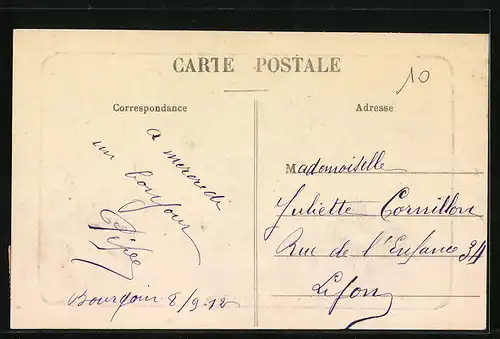 CARTE POSTALE
10
Correspondance
Adresse
a mercredi
un bonjour
Bourgoin 8/9-12
Mademoiselle
Juliette Cornillon
Rue de l'Enfance 34
Lyon